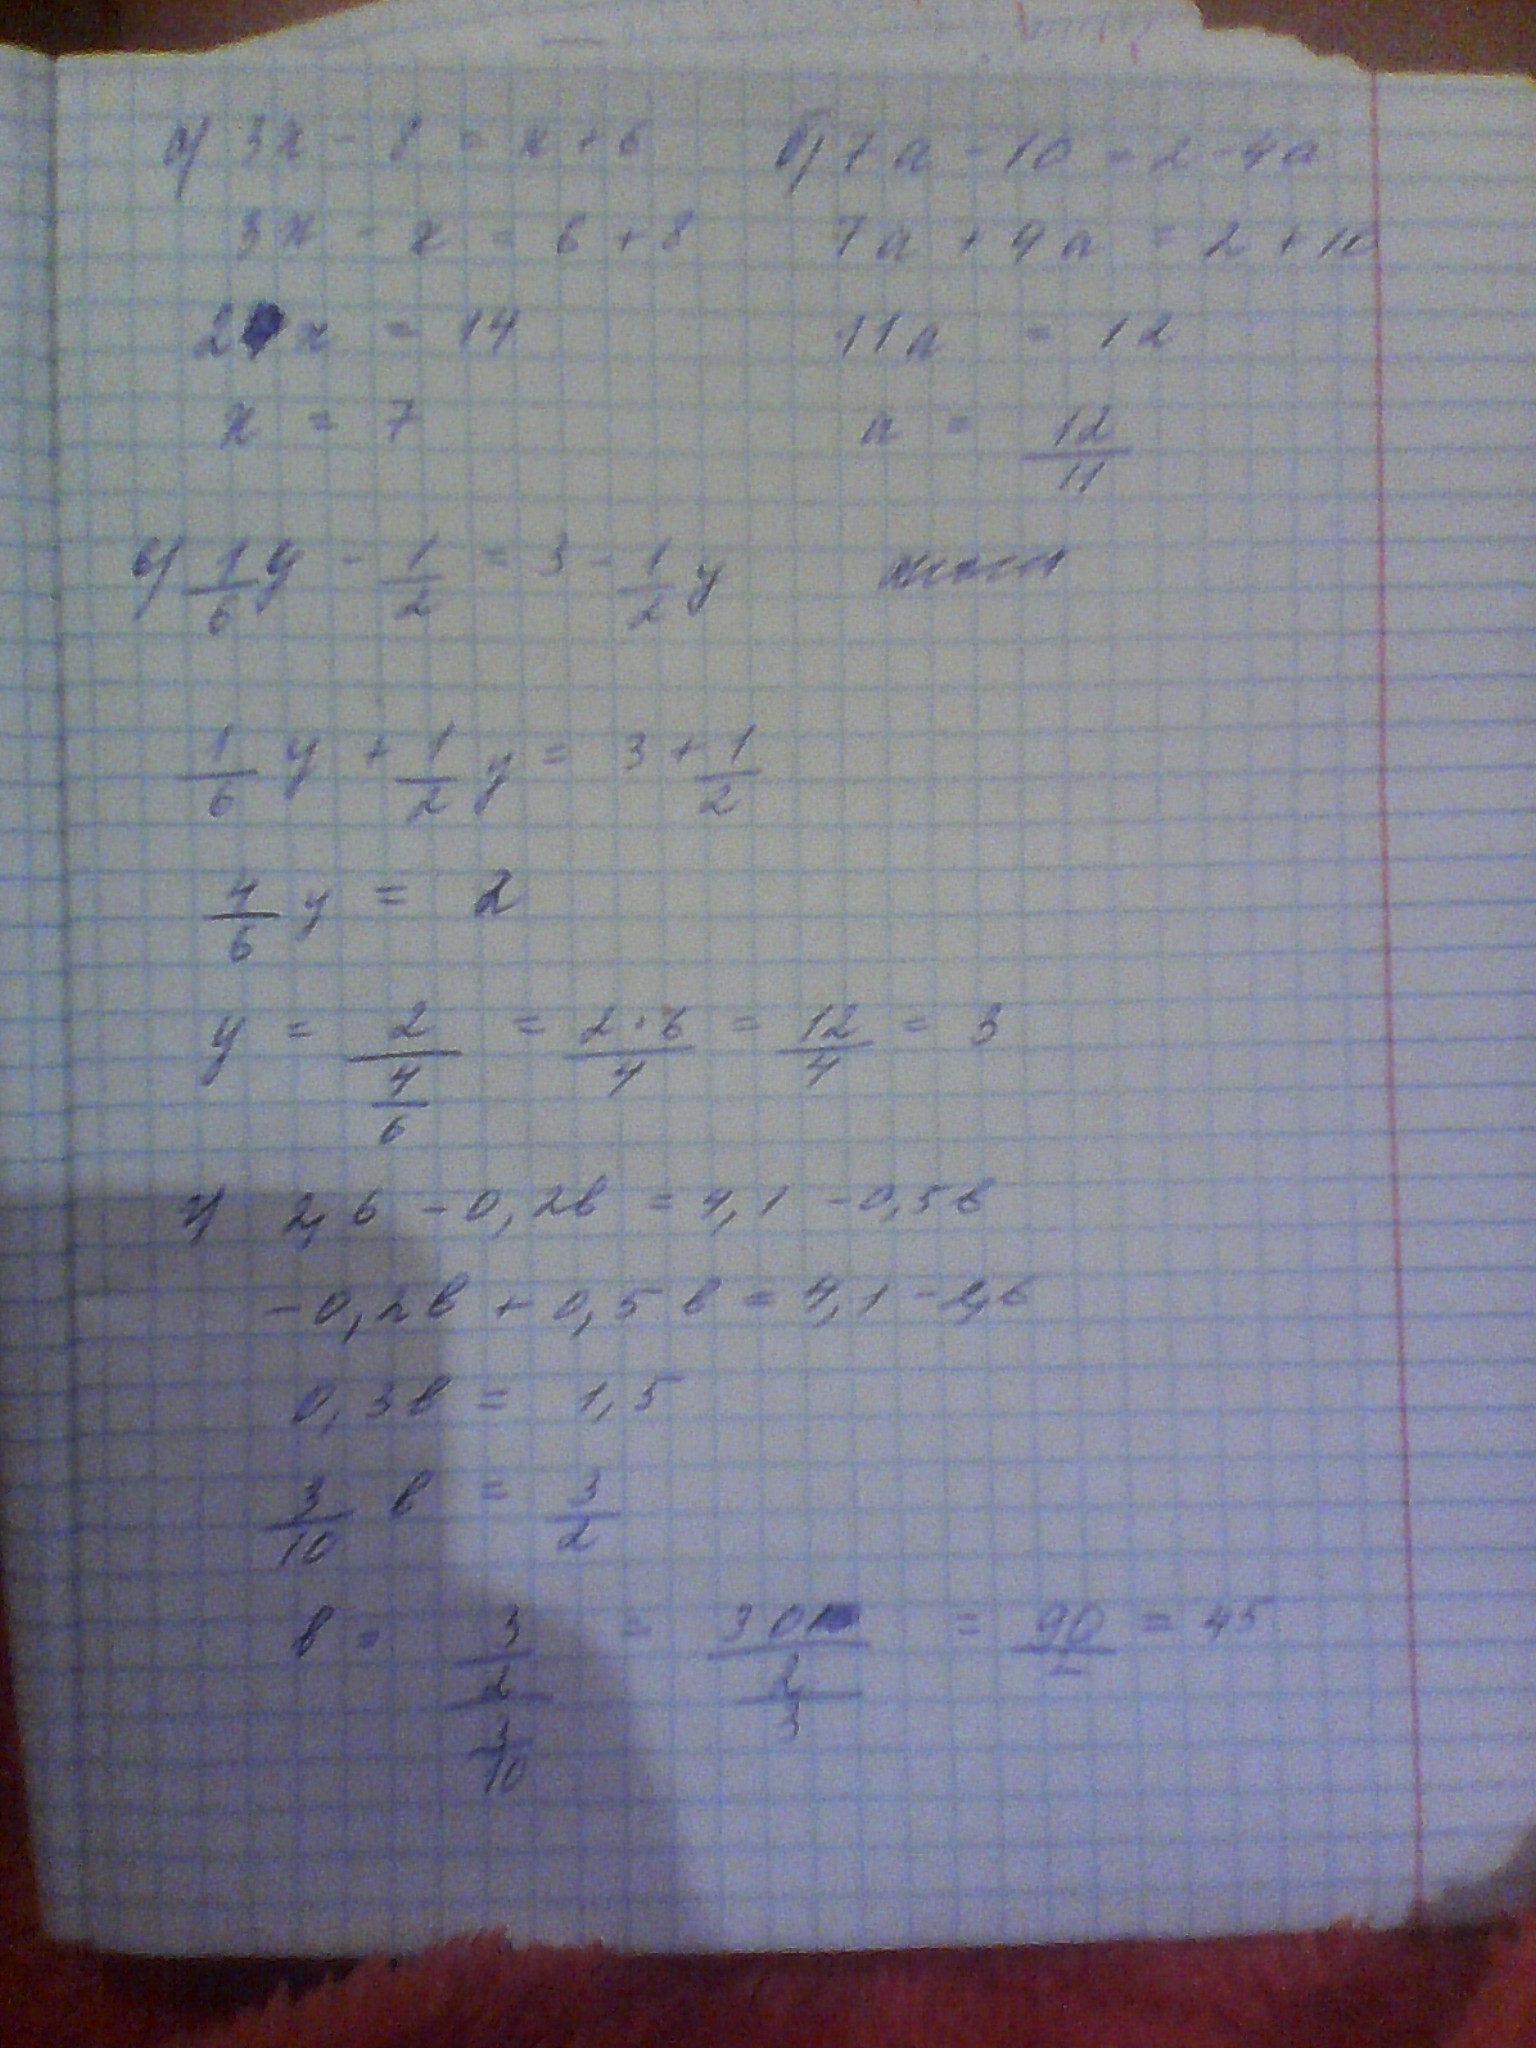 а) 3x - 8 = x + 6
3x - x = 6 + 8
2x = 14
x = 7
б) 7a - 10 = 2 - 4a
7a + 4a = 2 + 10
11a = 12
a = 12/11
в) 1/6 y - 1/2 = 3 - 1/2 y
1/6 y + 1/2 y = 3 + 1/2
4/6 y = 2
y = 2/(4/6) = 2·6/4 = 12/4 = 3
г) 2,6 - 0,2в = 4,1 - 0,5в
-0,2в + 0,5в = 4,1 - 2,6
0,3в = 1,5
3/10 в = 3/2
в = (3/2)/(3/10) = 30/2/3 = 90/2 = 45